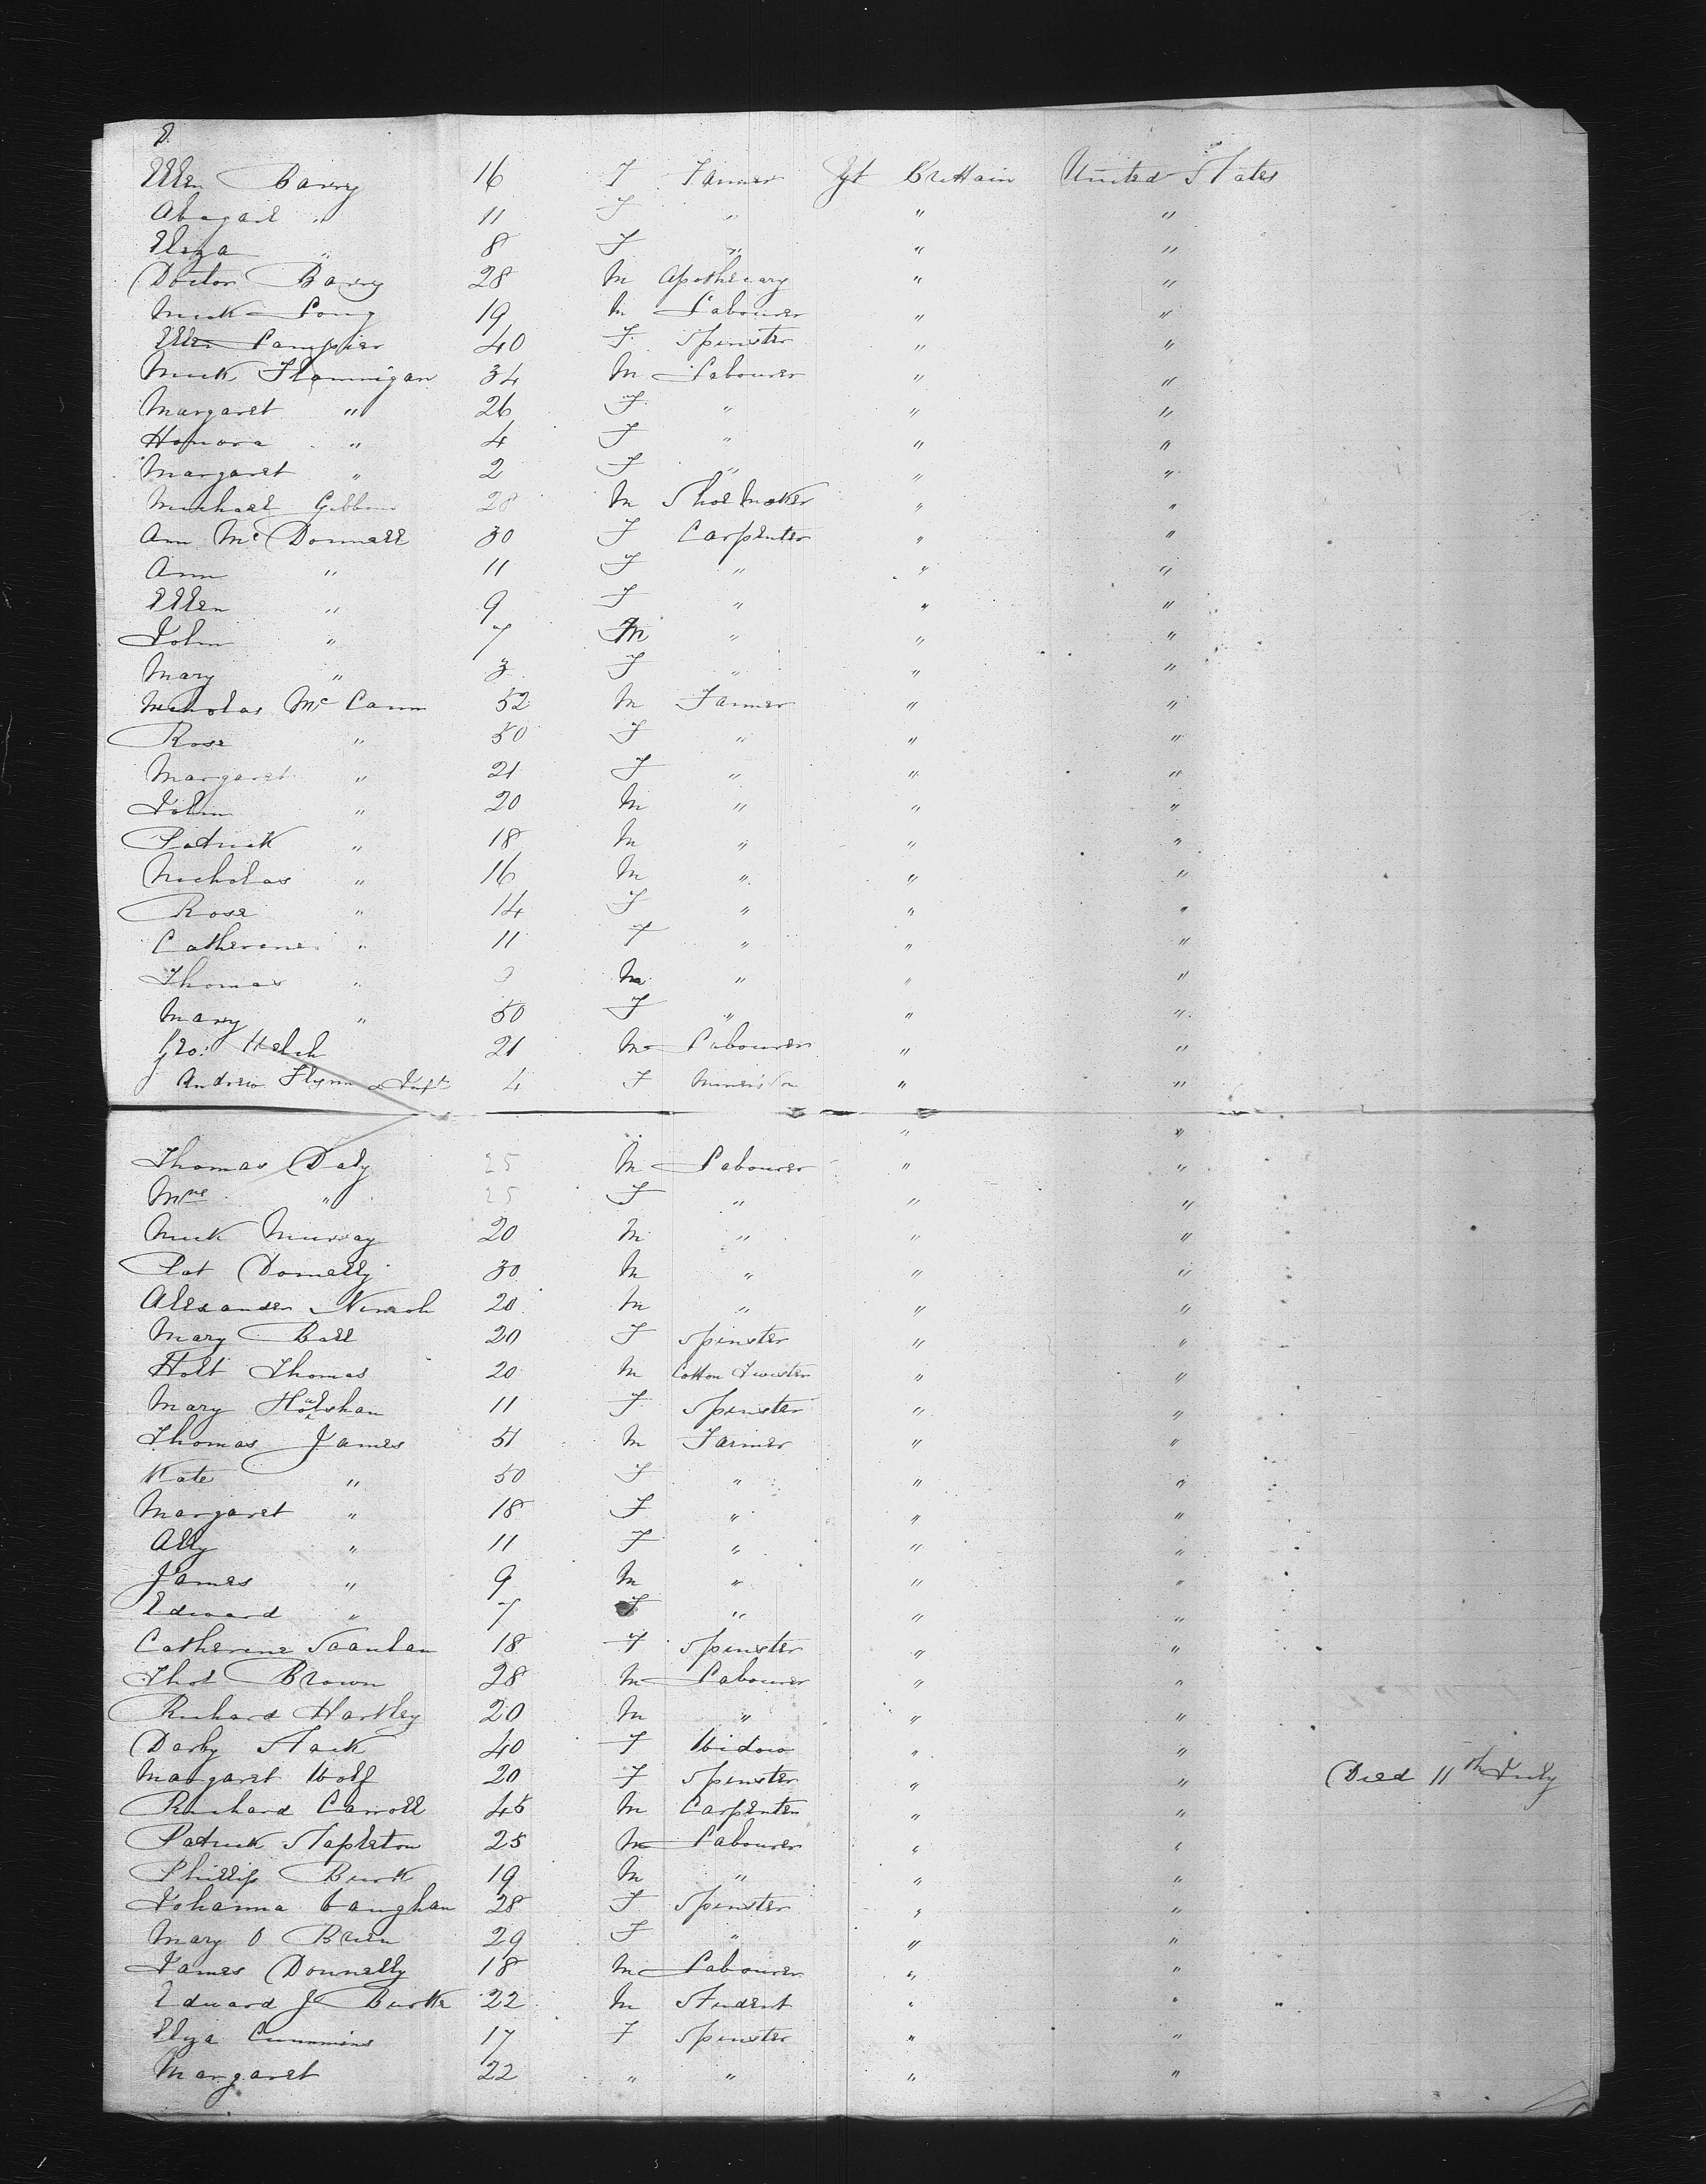 8.
Ellen Barry 16 F Farmer Gt Brittain United States
Abagail " 11 F " " "
Eliza " 8 F " " "
Doctor Barry 28 M Apothecary " "
Mick Long 19 M Labourer " "
Ellen Lampier 40 F Spinster " "
Mick Flannigan 34 M Labourer " "
Margaret " 26 F " " "
Honora " 4 F " " "
Margaret " 2 F " " "
Michael Gibbons 28 M Shoe Maker " "
Ann Mc Donnall 30 F Carpenter " "
Ann " 11 F " " "
Ellen " 9 F " " "
John " 7 M " " "
Mary " 3 F " " "
Nicholas Mc Cann 52 M Farmer " "
Rose " 50 F " " "
Margaret " 21 F " " "
John " 20 M " " "
Patrick " 18 M " " "
Nicholas " 16 M " " "
Rose " 14 F " " "
Catherine " 11 F " " "
Thomas " M " " "
Mary " 50 F " " "
Geo: Welch 21 M Labourer " "
Andrew Flynn 4 F " "
" "
Thomas Daly 25 M Labourer " "
Mrs " 25 F " " "
Mick Murray 20 M " " "
Pat Donnelly 30 M " " "
Alexander 20 M " " "
Mary Ball 20 F Spinster " "
Holt Thomas 20 M Cotton Twister " "
Mary 11 F Spinster " "
Thomas James 51 M Farmer " "
Kate " 50 F " " "
Margaret " 18 F " " "
Ally " 11 F " " "
James " 9 M " " "
Edward " 7 F " " "
Catherine Scanlan 18 F Spinster " "
Thos Brown 28 M Labourer " "
Richard Hartley 20 M " " "
Darby Stack 40 F Widow " "
Margaret Wolf 20 F Spinster " " Died 11th July
Richard Carroll 45 M Carpenter " "
Patrick Stapleton 25 M Labourer " "
Phillip Burk 19 M " " "
Johanna Vaughan 28 F Spinster " "
Mary O Brien 29 F " " "
James Donnelly 18 M Labourer " "
Edward J Burke 22 M Student " "
Eliza Cummins 17 F Spinster " "
Margaret 22 " " " "